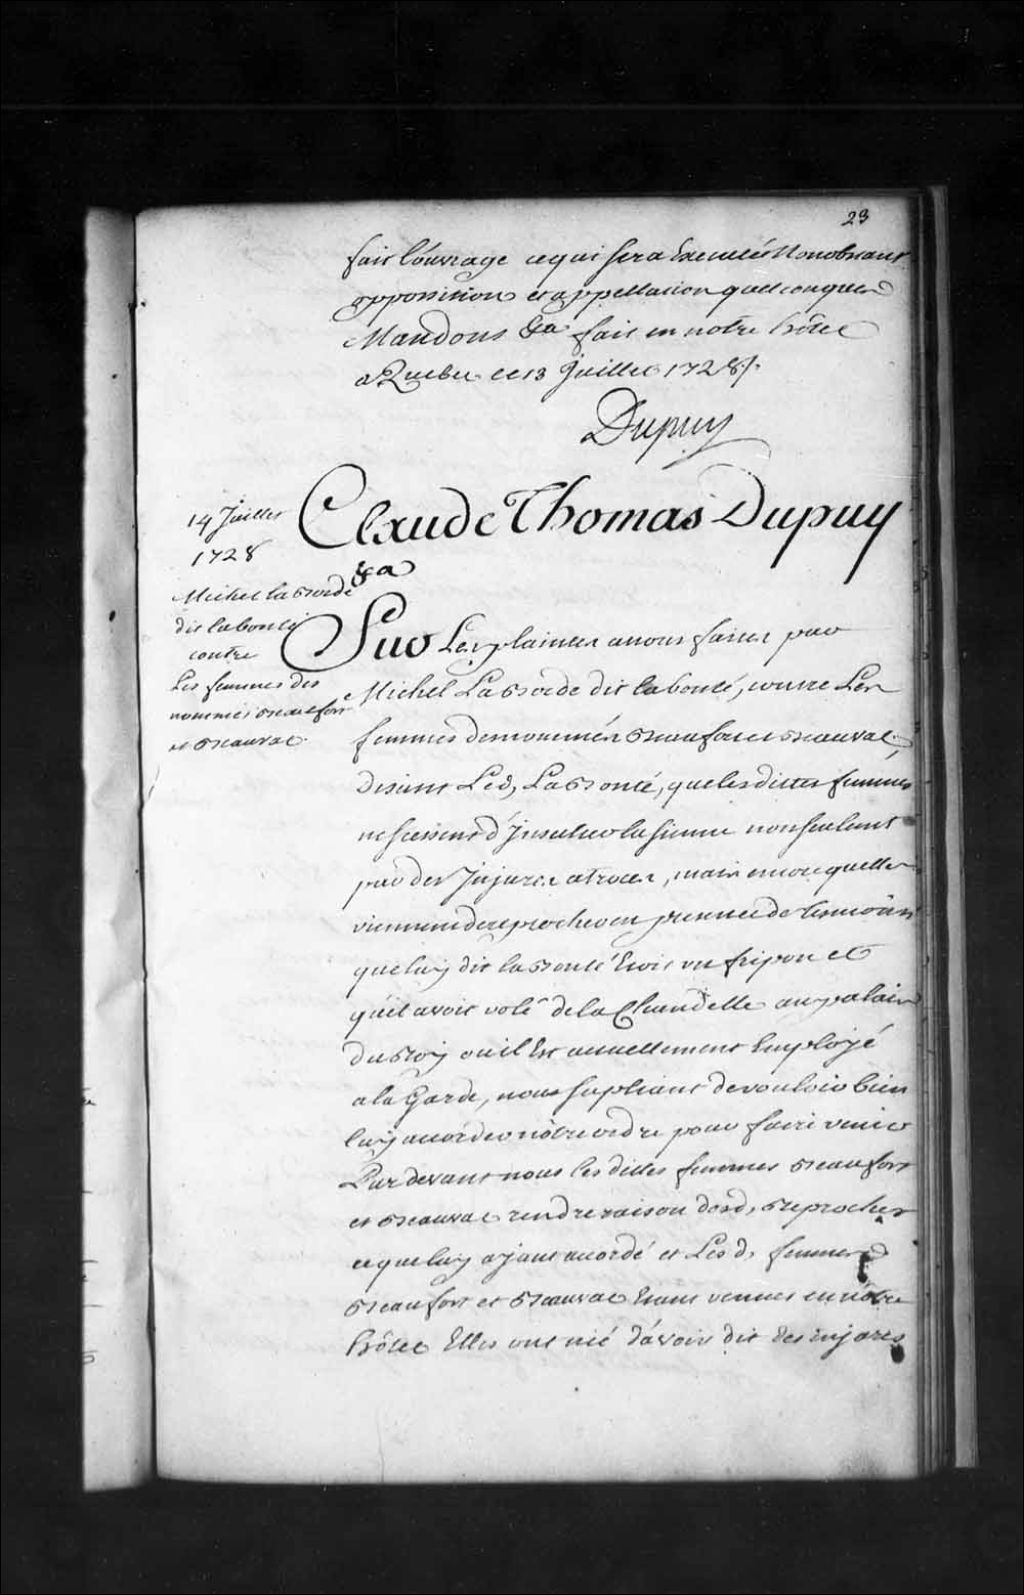 23
fait l'ouvrage ce qui sera Executé Nonobstant
opposition et appellation quelconques
Mandons &a fait en notre hôtel
a Quebec ce 13 Juillet 1728 /.
Dupuy
Claude Thomas Dupuy
&a
14 Juillet
1728
Michel la Borde
dit labonté
contre
Les femmes des
nommés Beaufort
et Beauval
Sur Les plaintes a nous faites par
Michel La Borde dit labonté, contre Les
femmes des nommés Beaufort et Beauval,
disant Led, La Bonté, que les dittes femmes
ne cessent d'Insulter la sienne non seulemt
par des Injures atroces, mais encore quelles
viennent de reprocher en presence de temoins
que luy dit la Bonté Etoit un fripon et
qu'il avoit volé de la Chandelle au palais
du Roy ou il Est actuellement Employé
a la Garde, nous supliant de vouloir bien
luy accorder nôtre ordre pour faire venir
Pardevant nous les dittes femmes Beaufort
et Beauval rendre raison desd, Reproches
ce que luy ayant accordé et Lesd, femmes
Beaufort et Beauval Etant venues en nôtre
hôtel Elles ont nié d'avoir dit des injures